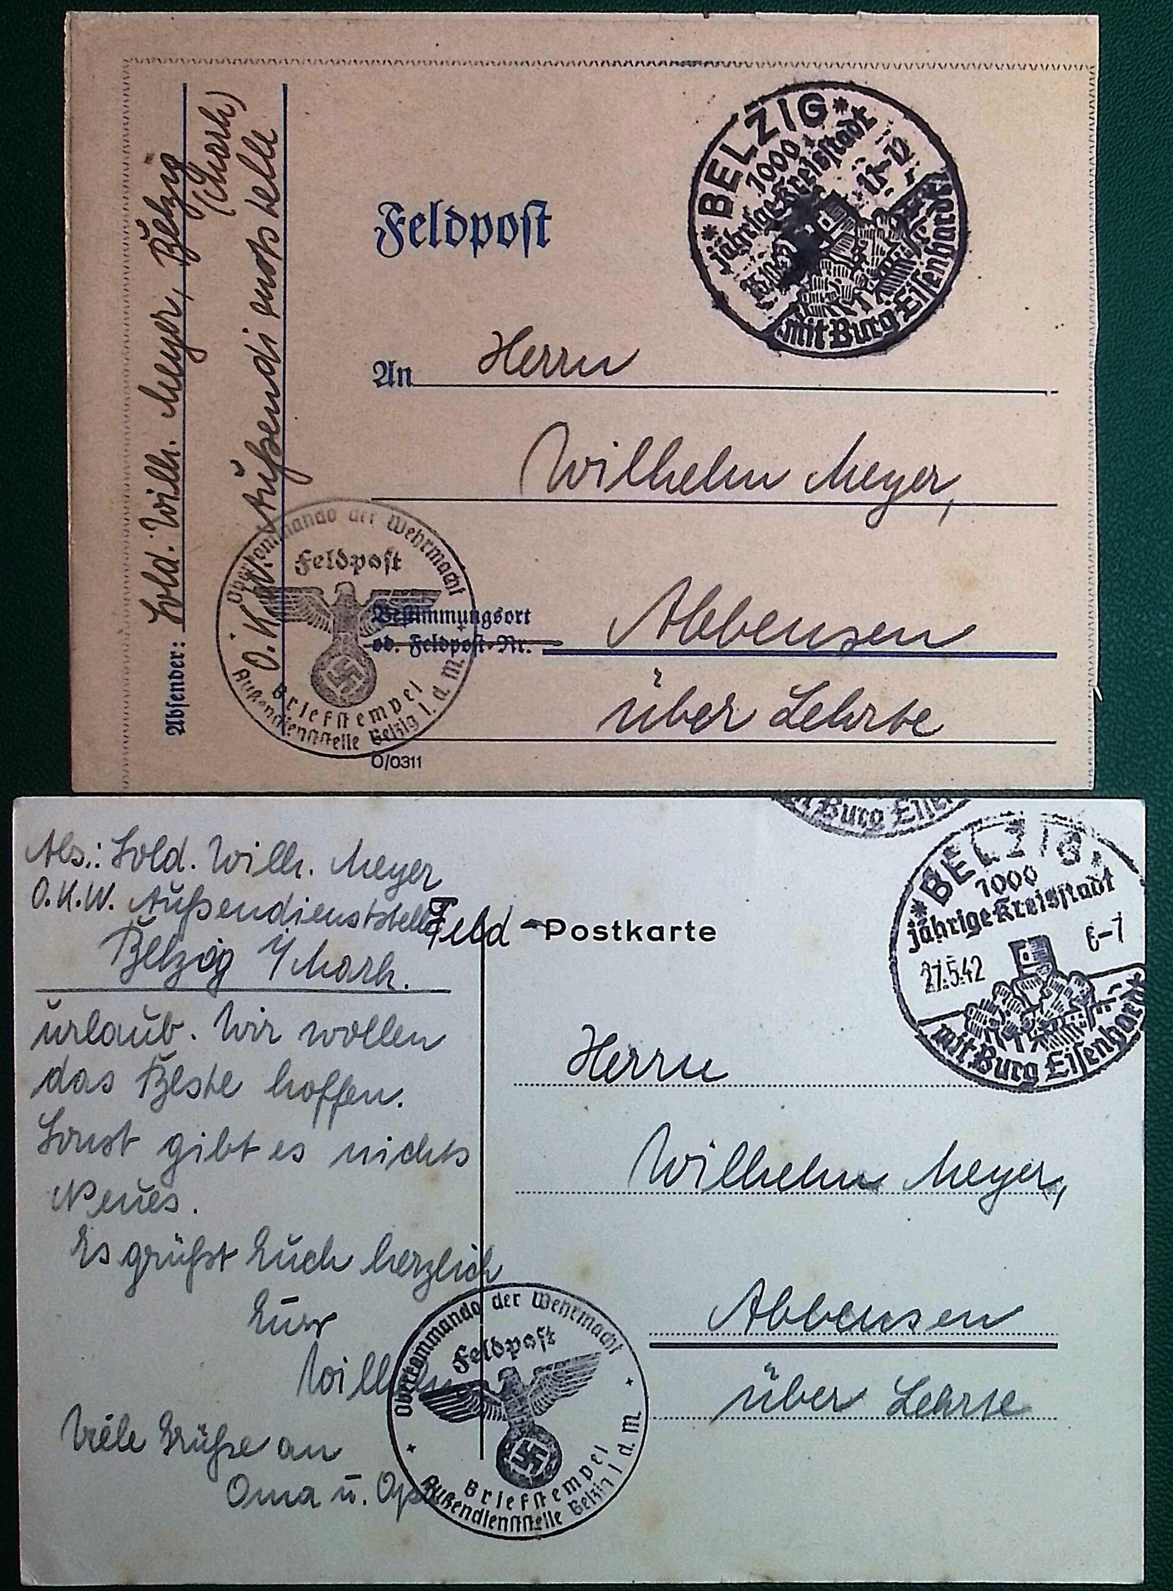 Absender: Sold. Wilh. Meyer, Belzig
(Mark)
O.K.W. Außendienststelle
Feldpost
*BELZIG*
1000
jährige Kreisstadt
11-12
mit Burg Eisenhardt
An Herrn
Wilhelm Meyer,
Bestimmungsort
od. Feldpost-Nr.
Abbensen
über Lehrte
Oberkommando der Wehrmacht
Feldpost
Briefstempel
Außendienststelle Belzig i. d. M.
O/0311
mit Burg Eisen
Abs.: Sold. Wilh. Meyer
O.K.W. Außendienststelle
Belzig i/Mark.
Feld-Postkarte
*BELZIG*
1000
jährige Kreisstadt
27.5.42
6-7
mit Burg Eisenhardt
urlaub. Wir wollen
das Beste hoffen.
Sonst gibt es nichts
Neues.
Es grüßt Euch herzlich
Euer
Wilhelm
Viele Grüße an
Oma u. Opa
Herrn
Wilhelm Meyer,
Abbensen
über Lehrte
Oberkommando der Wehrmacht
Feldpost
Briefstempel
Außendienststelle Belzig i. d. M.